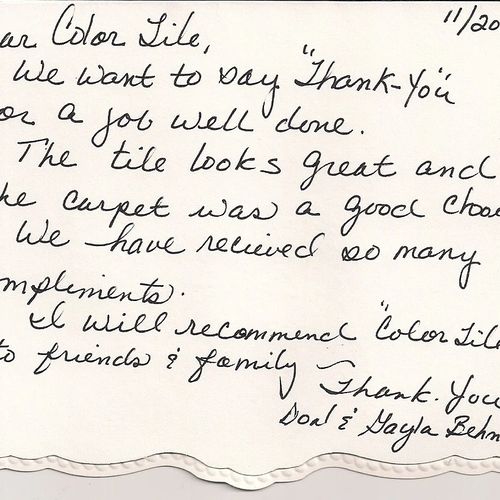 11/20
ar Color Tile,
We want to say "Thank-You"
or a job well done.
The tile looks great and
he carpet was a good choo
We have recieved so many
mpliments.
I will recommend "Color Tile
to friends & family ~
Thank. You
Don & Gayla Behn